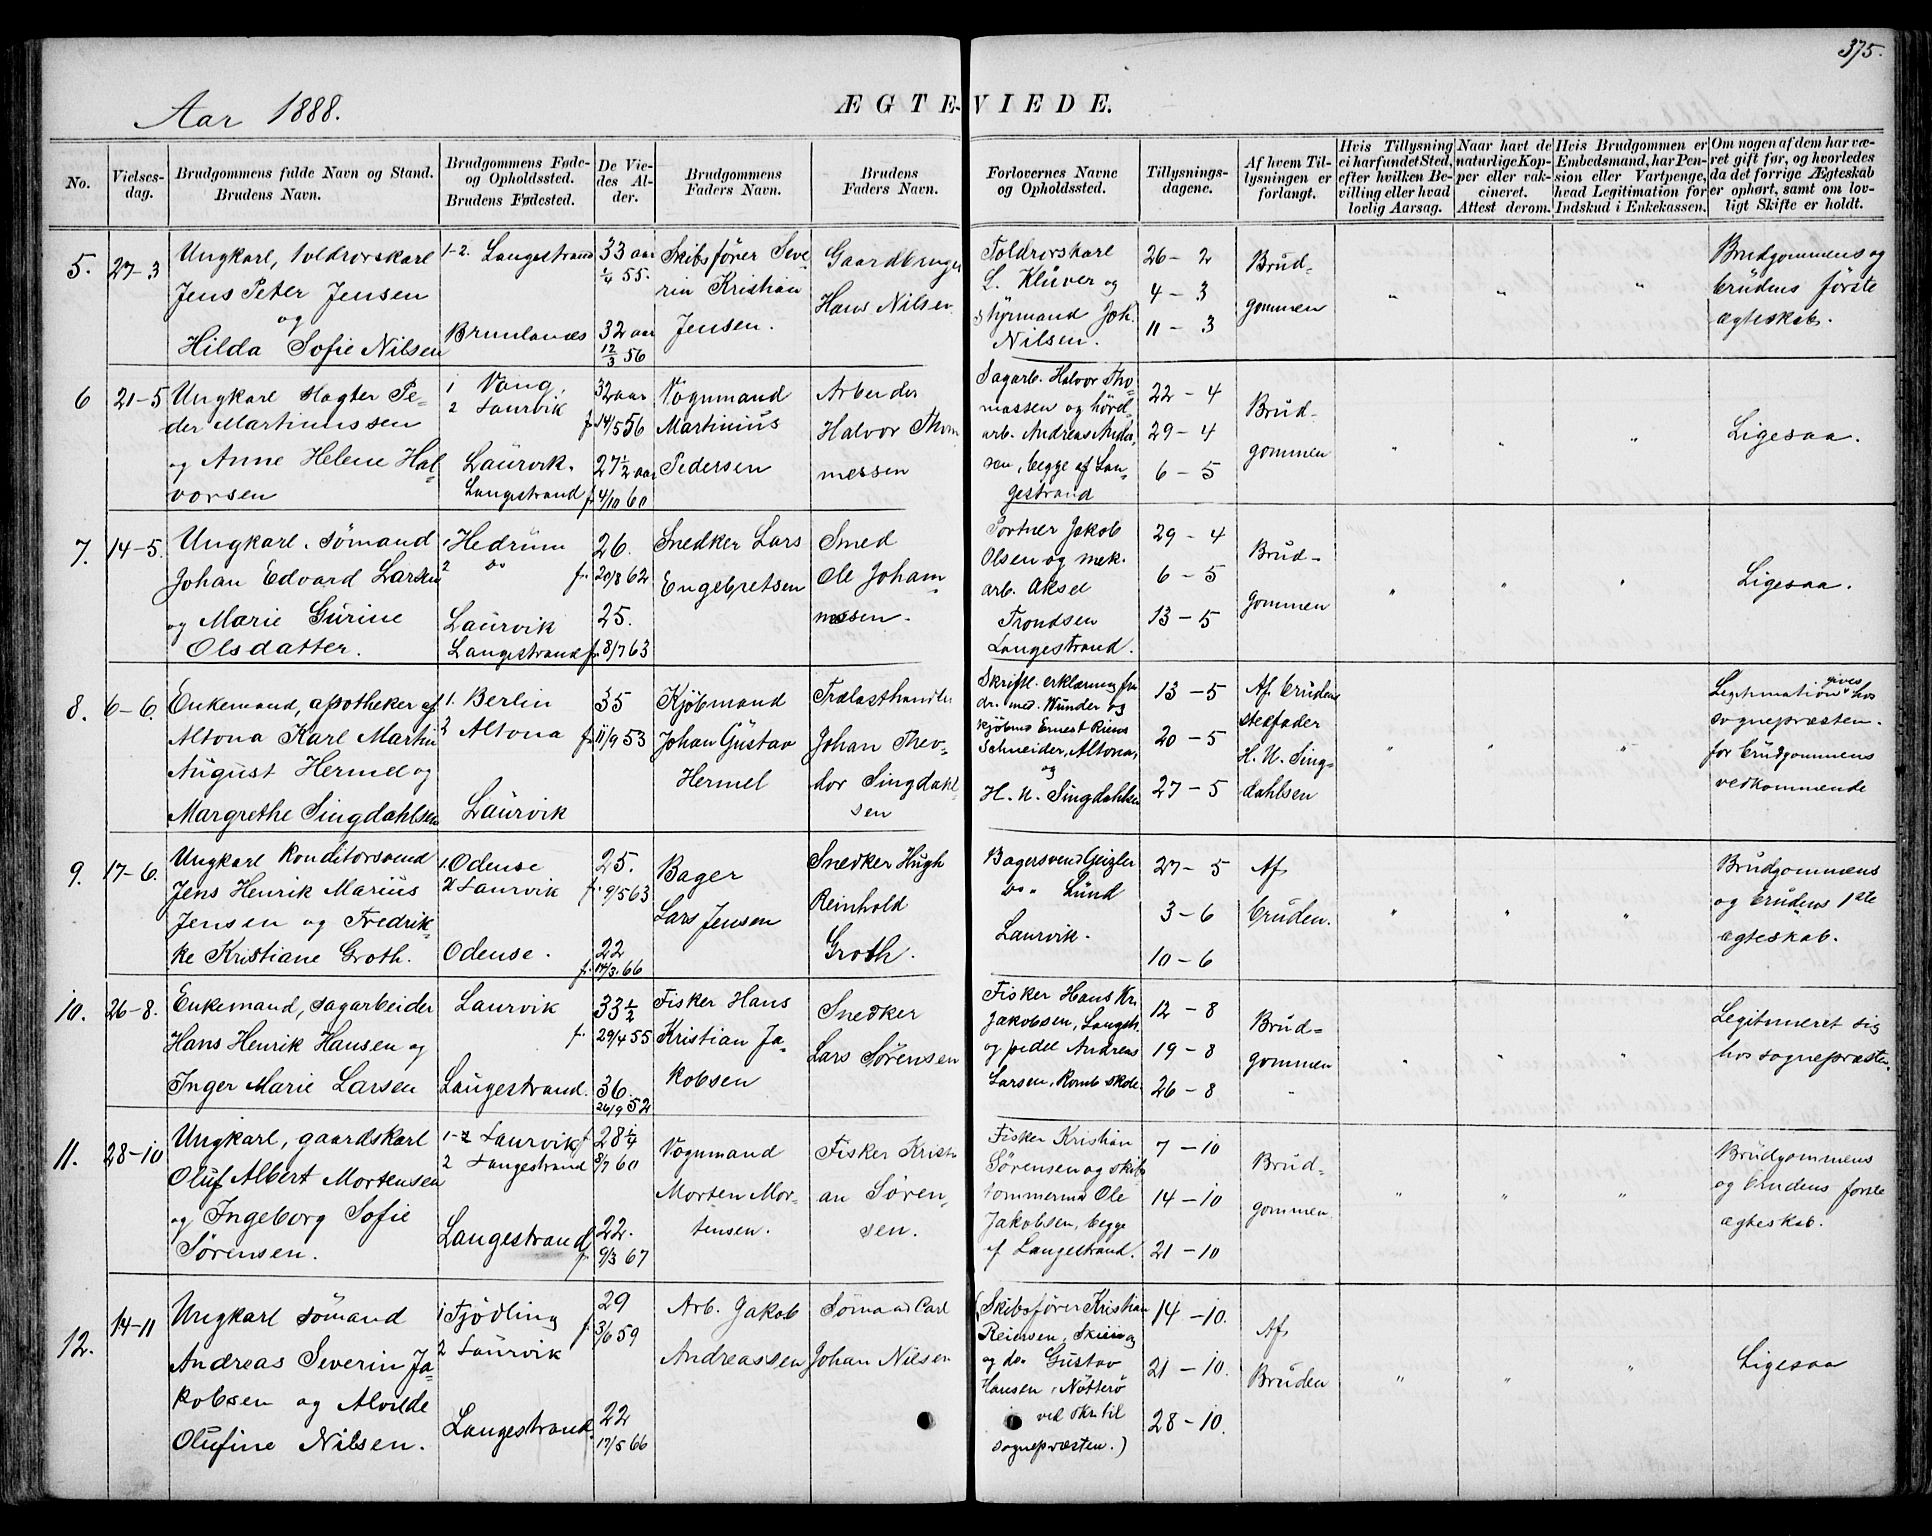 375.
Aar 1888.
ÆGTEVIEDE.
No.
Vielses-
dag.
Brudgommens fulde Navn og Stand.
Brudens Navn.
Brudgommens Føde-
og Opholdssted.
Brudens Fødested.
De Vie-
des Al-
der.
Brudgommens
Faders Navn.
Brudens
Faders Navn.
Forlovernes Navne
og Opholdssted.
Tillysnings-
dagene.
Af hvem Til-
lysningen er
forlangt.
Hvis Tillysning
ei har fundet Sted,
efter hvilken Be-
villing eller hvad
lovlig Aarsag.
Naar havt de
naturlige Kop-
per eller vak-
cineret.
Attest derom.
Hvis Brudgommen er
Embedsmand, har Pen-
sion eller Vartpenge,
hvad Legitimation for
Indskud i Enkekassen.
Om nogen af dem har væ-
ret gift før, og hvorledes
da det forrige Ægteskab
er ophørt, samt om lov-
ligt Skifte er holdt.
5.
27-3
Ungkarl, toldrorskarl
Jens Peter Jensen
og
Hilda Sofie Nilsen
1-2. Langestrand
Brunlanes
33 aar
1/4 55.
32 aar
12/3 56
Skibsfører Seve-
rin Kristian
Jensen.
Gaardbruger
Hans Nilsen
Toldrorskarl
L. Klüver og
styrmand Joh.
Nilsen.
26-2
4-3
11-3
Brud-
gommen
" " "
Brudgommens og
brudens første
ægteskab.
6
21-5
Ungkarl slagter Pe-
der Martinussen
og Anne Helene Hal-
vorsen
1 Vang,
2 Laurvik
Laurvik.
Langestrand
32 aar
f. 14/5 56
27 1/2 aar
f. 4/10 60
Vognmand
Martinius
Pedersen
Arbeider
Halvor Thom
messen
Sagarb. Halvor Tho
massen og høvl-
arb. Andreas Ander
sen, begge af Lan-
gestrand
22-4
29-4
6-5
Brud-
gommen
" " "
Ligesaa.
7.
14-5.
Ungkarl, sømand
Johan Edvard Larsen
og Marie Gurine
Olsdatter.
1 Hedrum
2 do
Laurvik
Langestrand
26.
f. 20/8 62
25.
f. 8/7 63
Snedker Lars
Engebretsen
Smed
Ole Johan-
nesen.
Portner Jakob
Olsen og mek.
arb. Aksel
Trondsen
Langestrand.
29-4
6-5
13-5
Brud-
gommen
" " "
Ligesaa.
8.
6-6.
Enkemand, apotheker af
Altona Karl Martin
August Hermel og
Margrethe Singdahlsen
1. Berlin
2 Altona
Laurvik
35
f. 11/9 53
Kjøbmand
Johan Gustav
Hermel
Trælasthandler
Johan Theo-
dor Singdahl-
sen
Skriftl. erklæring fra
dr. med. Wunder og
kjøbm. Ernest Riens
Schneider, Altona,
og
H. N. Singdahlsen
13-5
20-5
27-5
Af brudens
stedfader
H. N. Sing-
dahlsen
" " "
Legitimation gives hos
sognepræsten.
for brudgommens
vedkommende
9.
17-6.
Ungkarl konditorsvend
Jens Henrik Marius
Jensen og Fredrik-
ke Kristiane Groth.
1. Odense
2 Laurvik
Odense.
25.
f. 9/5 63
22
f. 14/3 66
Bager
Lars Jensen
Snedker Hugh
Reinhold
Groth.
Bagersvend Geizler
do " Lund
Laurvik.
27-5
3-6
10-6
Af
bruden.
" " "
Brudgommens
og brudens 1ste
ægteskab.
10.
26-8.
Enkemand, sagarbeider
Hans Henrik Hansen og
Inger Marie Larsen
Laurvik
Langestrand.
33 1/2
f. 29/4 55
36.
26/9 52
Fisker Hans
Kristian Ja-
kobsen
Snedker
Lars Sørensen
Fisker Hans Kr.
Jakobsen, Langestr.
og pedel Andreas
Larsen, Komb. skole.
12-8
19-8
26-8
Brud-
gommen
" " "
Legitimeret sig
hos sognepræsten.
11.
28-10
Ungkarl, gaardskarl
Oluf Albert Mortensen
og Ingeborg Sofie
Sørensen.
1-2 Laurvik
2 Langestrand
Langestrand
f. 28 1/4
8/7 60
22.
f. 9/3 67
Vognmand
Morten Mor-
tensen.
Fisker Kristi
an Søren-
sen.
Fisker Kristian
Sørensen og skibs
tømmermd Ole
Jakobsen, begge
af Langestrand.
7-10
14-10
21-10
Brud-
gommen.
" " "
Brudgommens
og brudens første
ægteskab.
12.
14-11
Ungkarl sømand
Andreas Severin Ja-
kobsen og Alvilde
Olufine Nilsen.
1 Tjødling
2 Laurvik
Langestrand.
29
f. 3/6 59
22
17/5 66
Arb. Jakob
Andreassen
Sømand Carl
Johan Nilsen
(Skibsfører Kristian
Reiersen, Skien
og do. Gustav
Hansen, Nøtterø
ved skr. til
sognepræsten.)
14-10.
21-10.
28-10.
Af
Bruden
" " "
Ligesaa